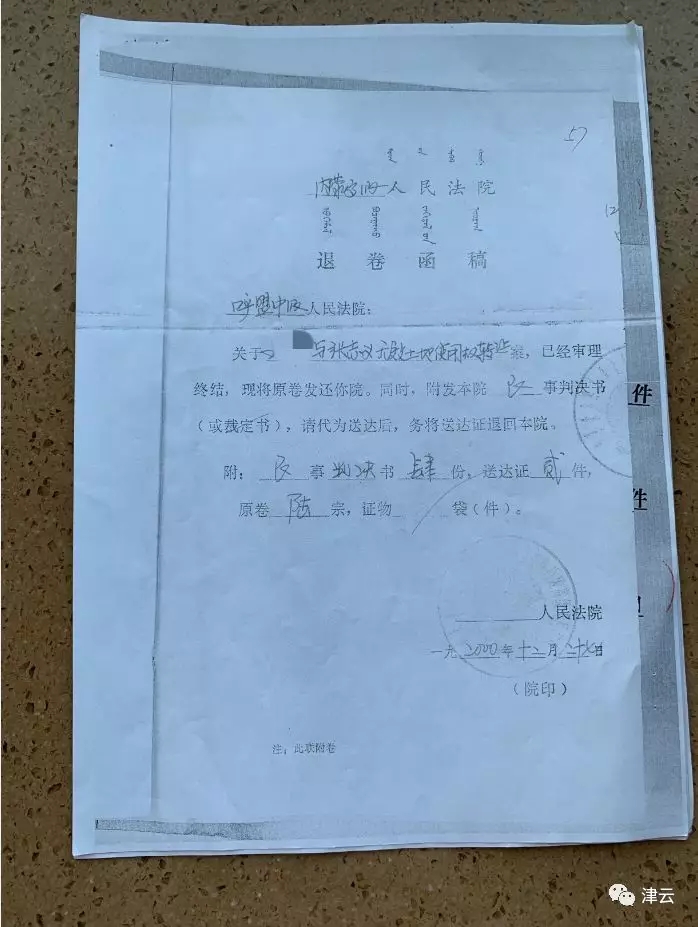 57
内蒙古高级人民法院
退卷函稿
呼盟中级人民法院：
关于 与张志义 土地使用权转让案，已经审理
终结，现将原卷发还你院。同时，附发本院 民 事判决书
（或裁定书），请代为送达后，务将送达证退回本院。
附： 民 事 判决 书 肆 份，送达证 贰 件，
原卷 陆 宗，证物 袋（件）。
人民法院
一九 2000年 十二月 二十七日
（院印）
注：此联附卷
件
件
津云